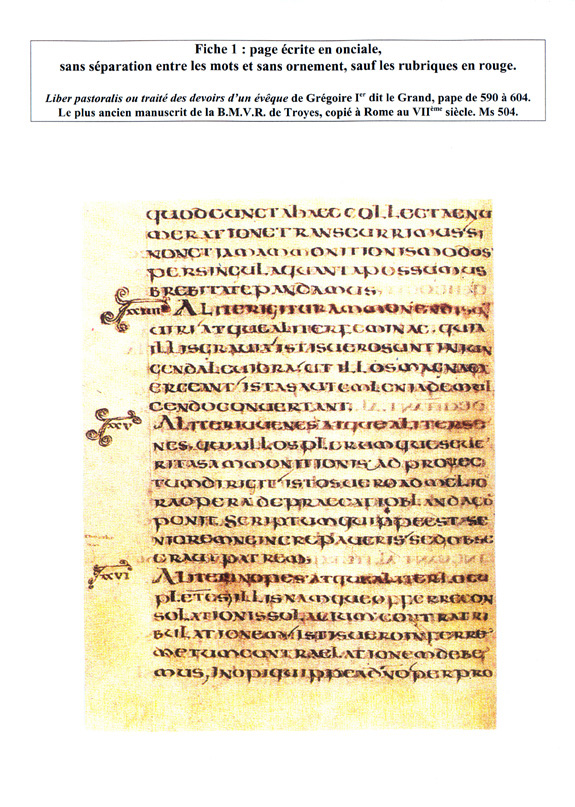 Fiche 1 : page écrite en onciale,
sans séparation entre les mots et sans ornement, sauf les rubriques en rouge.
Liber pastoralis ou traité des devoirs d'un évêque de Grégoire Ier dit le Grand, pape de 590 à 604.
Le plus ancien manuscrit de la B.M.V.R. de Troyes, copié à Rome au VIIème siècle. Ms 504.
QUODCUNCTAHAECCOLLECTAENU
MERATIONETRANSCURRIMUSSI
NONETIAMAMMONITIONISMODOS
PERSINGULAQUANTAPOSSUMUS
BREBITATEPANDAMUS.
XXIIII ALITERIGITURAMMONENDISUN
UIRIATQUEALITERFEMINAE. QUIA
ILLISGRAUIAISTISUEROSUNTINIUN
GENDALEUIORAUTILLOSMAGNAEX
ERCEANTISTASAUTEMLENIADEMUL
CENDOCONUERTANT.
XXV ALITERIUUENESATQUEALITERSE
NES. QUIAILLOSPLERUMQUESEUE
RITASAMMONITIONISADPROVEC
TUMDIRIGITISTOSUEROADMELIO
RAOPERADEPRAECATIOBLANDACO
PONIT. SCRIPTUMQUIPPEESTSE
NIOREMNEINCREPAUERISSEDOBSE
CRAUTPATREM
XXVI ALITERINOPESATQUEALITERLOCU
PLETESILLISNAMQUEOFFERRECON
SOLATIONISSOLACIUMCONTRATRI
BULATIONEMISTISUEROINFERRE
METUMCONTRAELATIONEMDEBE
MUS, INOPIQUIPPEADNOPERPRO